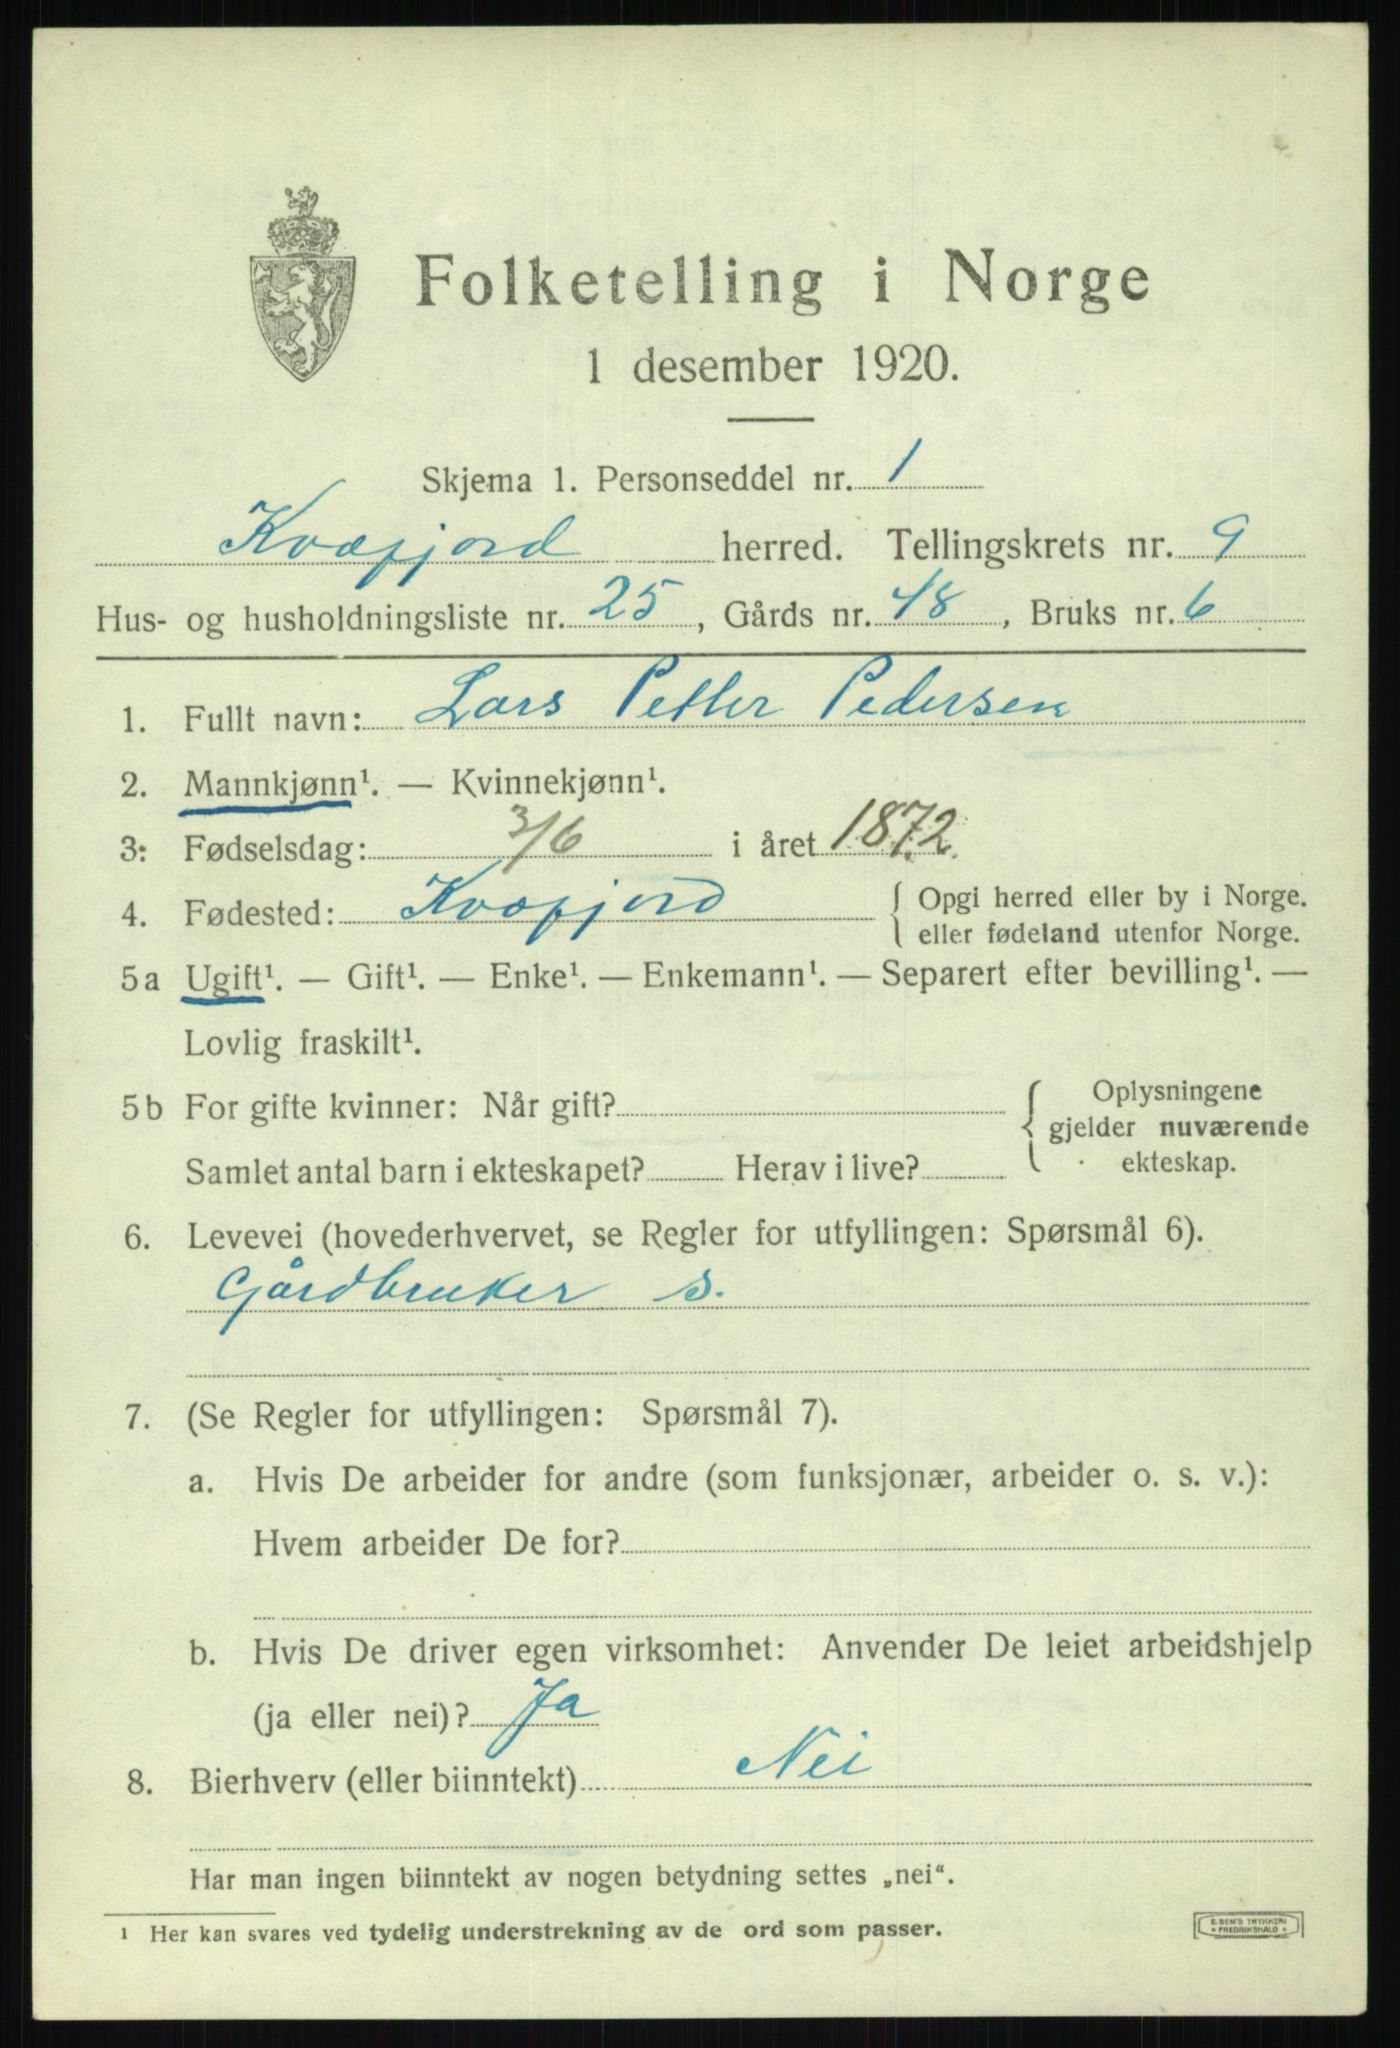 Folketelling i Norge
1 desember 1920.
Skjema 1. Personseddel nr. 1
Kvæfjord herred. Tellingskrets nr. 9
Hus- og husholdningsliste nr. 25, Gårds nr. 48, Bruks nr. 6
1. Fullt navn: Lars Petter Pedersen
2. Mannkjønn¹. — Kvinnekjønn¹.
3. Fødselsdag: 3/6 i året 1872.
4. Fødested: Kvæfjord { Opgi herred eller by i Norge.
eller fødeland utenfor Norge.
5a Ugift¹. — Gift¹. — Enke¹. — Enkemann¹. — Separert efter bevilling¹. —
Lovlig fraskilt¹.
5b For gifte kvinner: Når gift? { Oplysningene
gjelder nuværende
ekteskap.
Samlet antal barn i ekteskapet? Herav i live?
6. Levevei (hovederhvervet, se Regler for utfyllingen: Spørsmål 6).
Gårdbruker s.
7. (Se Regler for utfyllingen: Spørsmål 7).
a. Hvis De arbeider for andre (som funksjonær, arbeider o. s. v.):
Hvem arbeider De for?
b. Hvis De driver egen virksomhet: Anvender De leiet arbeidshjelp
(ja eller nei)? Ja
8. Bierhverv (eller biinntekt) Nei
Har man ingen biinntekt av nogen betydning settes „nei“.
¹ Her kan svares ved tydelig understrekning av de ord som passer.
E. SEM'S TRYKKERI
FREDRIKSHALD